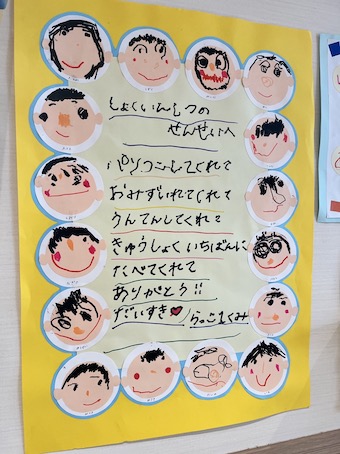 しょくいんしつの
せんせいへ
パソコンしてくれて
おみずいれてくれて
うんてんしてくれて
きゅうしょくいちばんに
たべてくれて
ありがとう!!
だいすき♥ らっこぐみ